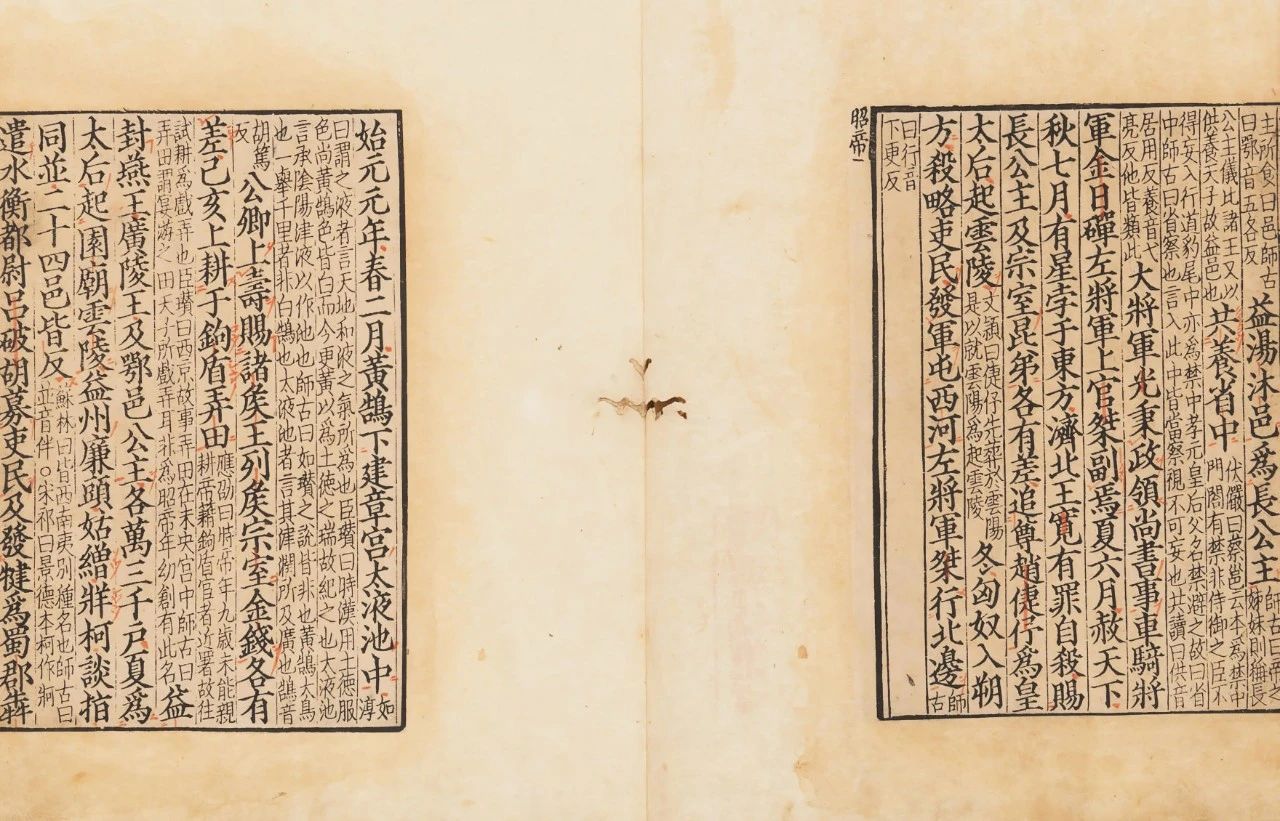 主所食曰邑師古曰鄂音五各反益湯沐邑爲長公主師古曰帝之姊妹則稱長
公主儀比諸王又以供養天子故益邑也共養省中伏儼曰蔡邕云本爲禁中門閤有禁非侍御之臣不
得妄入行道豹尾中亦爲禁中孝元皇后父名禁避之故曰省中師古曰省察也言入此中皆當察視不可妄也共讀曰供音
居用反養音弋亮反他皆類此大將軍光秉政領尚書事車騎將
軍金日磾左將軍上官桀副焉夏六月赦天下
秋七月有星孛于東方濟北王寬有罪自殺賜
長公主及宗室昆弟各有差追尊趙倢伃爲皇
太后起雲陵文穎曰倢伃先葬於雲陽是以就雲陽爲起雲陵冬匈奴入朔
方殺略吏民發軍屯西河左將軍桀行北邊師古
曰行音下更反
昭帝一
始元元年春二月黃鵠下建章宮太液池中如淳
曰謂之液者言天地和液之氣所爲也臣瓚曰時漢用土德服色尚黃鵠色皆白而今更黃以爲土德之瑞故紀之也太液池
言承陰陽津液以作池也師古曰如瓚之說皆非也黃鵠大鳥也一舉千里者非白鵠也太液池者言其津潤所及廣也鵠音
胡篤反公卿上壽賜諸侯王列侯宗室金錢各有
差己亥上耕于鉤盾弄田應劭曰時帝年九歲未能親耕帝籍鉤盾宦者近署故往
試耕爲戲弄也臣瓚曰西京故事弄田在未央宮中師古曰弄田謂宴游之田天子所戲弄耳非爲昭帝年幼創有此名益
封燕王廣陵王及鄂邑公主各萬三千戶夏爲
太后起園廟雲陵益州廉頭姑繒牂柯談指
同並二十四邑皆反蘇林曰皆西南夷別種名也師古曰並音伴○宋祁曰景德本柯作牁
遣水衡都尉呂破胡募吏民及發犍爲蜀郡犇